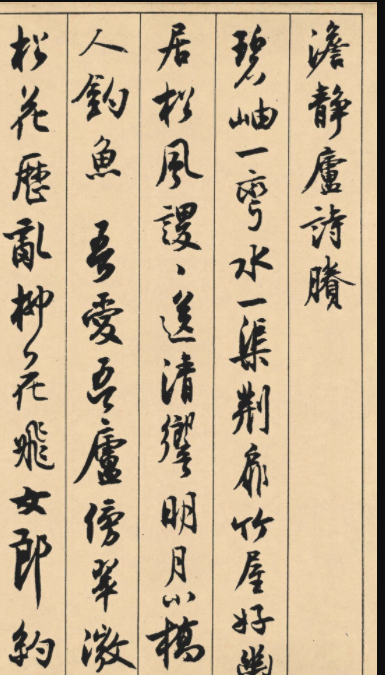 澹静廬詩賸
碧岫一弯水一渠荆扉竹屋好幽
居松風謖〻送清響明月小橋
人釣魚 吾愛吾廬傍翠微
松花歷亂柳花飛女郎約